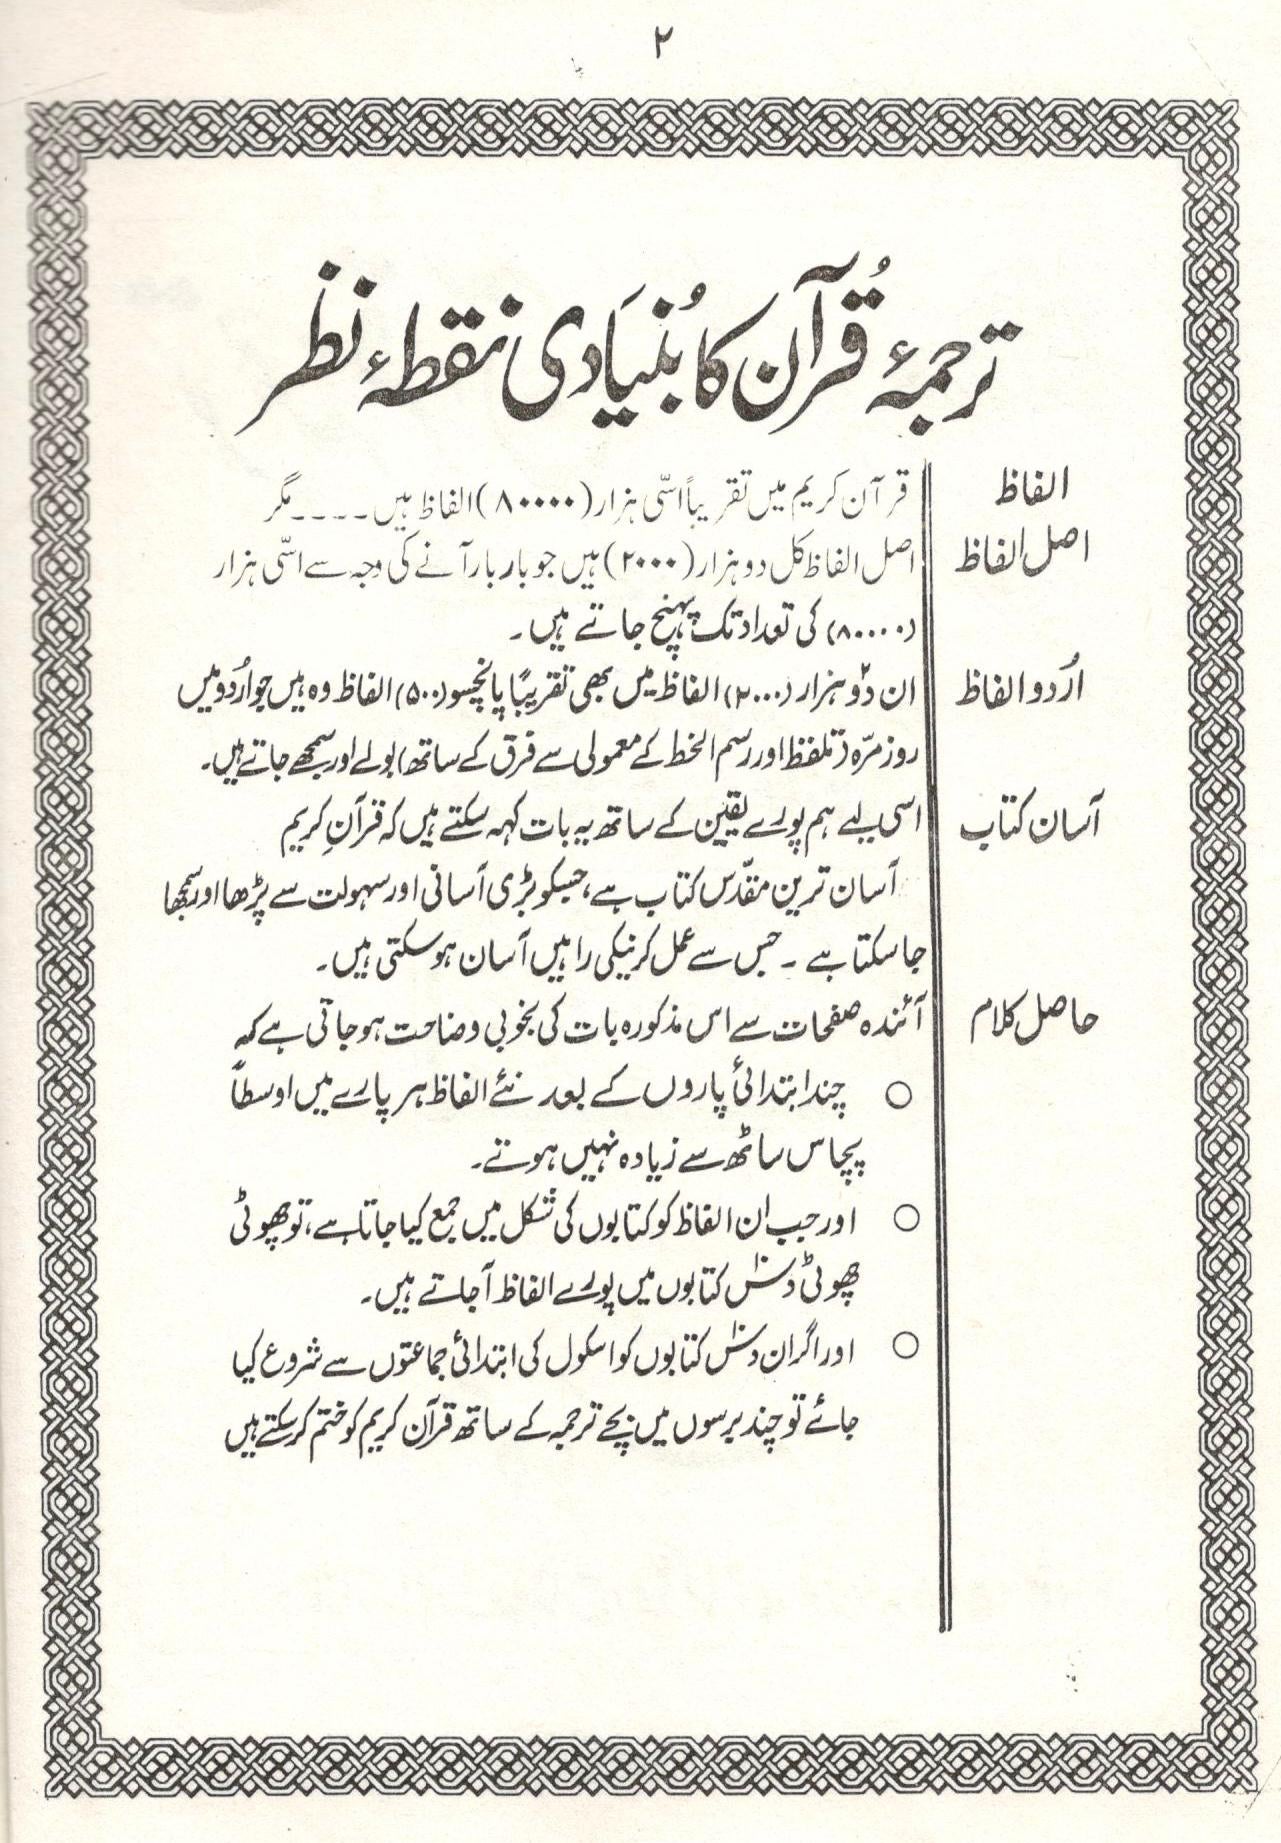 ۲
ترجمۂ قُرآن کا بُنیَادی نقطۂ نظر
الفاظ
قرآن کریم میں تقریباً اسّی ہزار (۸۰۰۰۰) الفاظ ہیں ۔۔۔۔ مگر
اصل الفاظ
اصل الفاظ کل دو ہزار (۲۰۰۰) ہیں جو بار بار آنے کی وجہ سے اسّی ہزار
(۸۰۰۰۰) کی تعداد تک پہنچ جاتے ہیں ۔
اُردو الفاظ
ان دو۲ ہزار (۲۰۰۰) الفاظ میں بھی تقریبًا پانچسو (۵۰۰) الفاظ وہ ہیں جو اُردو میں
روز مرّہ (تلفظ اور رسم الخط کے معمولی سے فرق کے ساتھ) بولے اور سمجھے جاتے ہیں۔
آسان کتاب
اسی لیے ہم پورے یقین کے ساتھ یہ بات کہہ سکتے ہیں کہ قرآنِ کریم
آسان ترین مقدّس کتاب ہے، جسکو بڑی آسانی اور سہولت سے پڑھا اور سمجھا
جا سکتا ہے ۔ جس سے عمل کرنیکی راہیں آسان ہو سکتی ہیں ۔
حاصل کلام
آئندہ صفحات سے اس مذکورہ بات کی بخوبی وضاحت ہو جاتی ہے کہ
○ چند ابتدائی پاروں کے بعد نئے الفاظ ہر پارے میں اوسطاً
پچاس ساٹھ سے زیادہ نہیں ہوتے۔
○ اور جب ان الفاظ کو کتابوں کی شکل میں جمع کیا جاتا ہے، تو چھوٹی
چھوٹی دس۱۰ کتابوں میں پورے الفاظ آجاتے ہیں۔
○ اور اگر ان دس۱۰ کتابوں کو اسکول کی ابتدائی جماعتوں سے شروع کیا
جائے تو چند برسوں میں بچے ترجمہ کے ساتھ قرآن کریم کو ختم کر سکتے ہیں